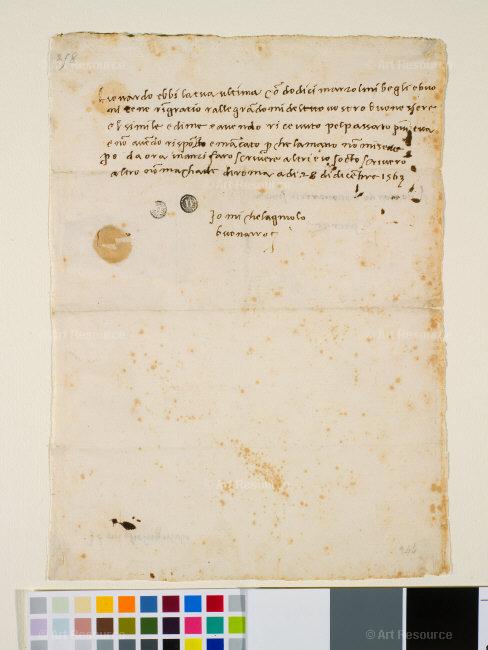 258
Lionardo ebbi la tua ultima cō dodici marzolini begli e buo
ni te ne rīgratio rallegrādomi del tuto vostro buono essere
el simile è di me e avendo ricevuto pel passato piu tua
e nō avēdo risposto e mācato p che la mano nō mi serve
po da ora inanzi faro scrivere altri e io soctoscriverro
altro nō macchade di roma a di 28 di dicēbre 1563
Io Michelagniolo
buonarroti
© Art Resource
© Art Resource
© Art Resource
© Art Resource
© Art Resource